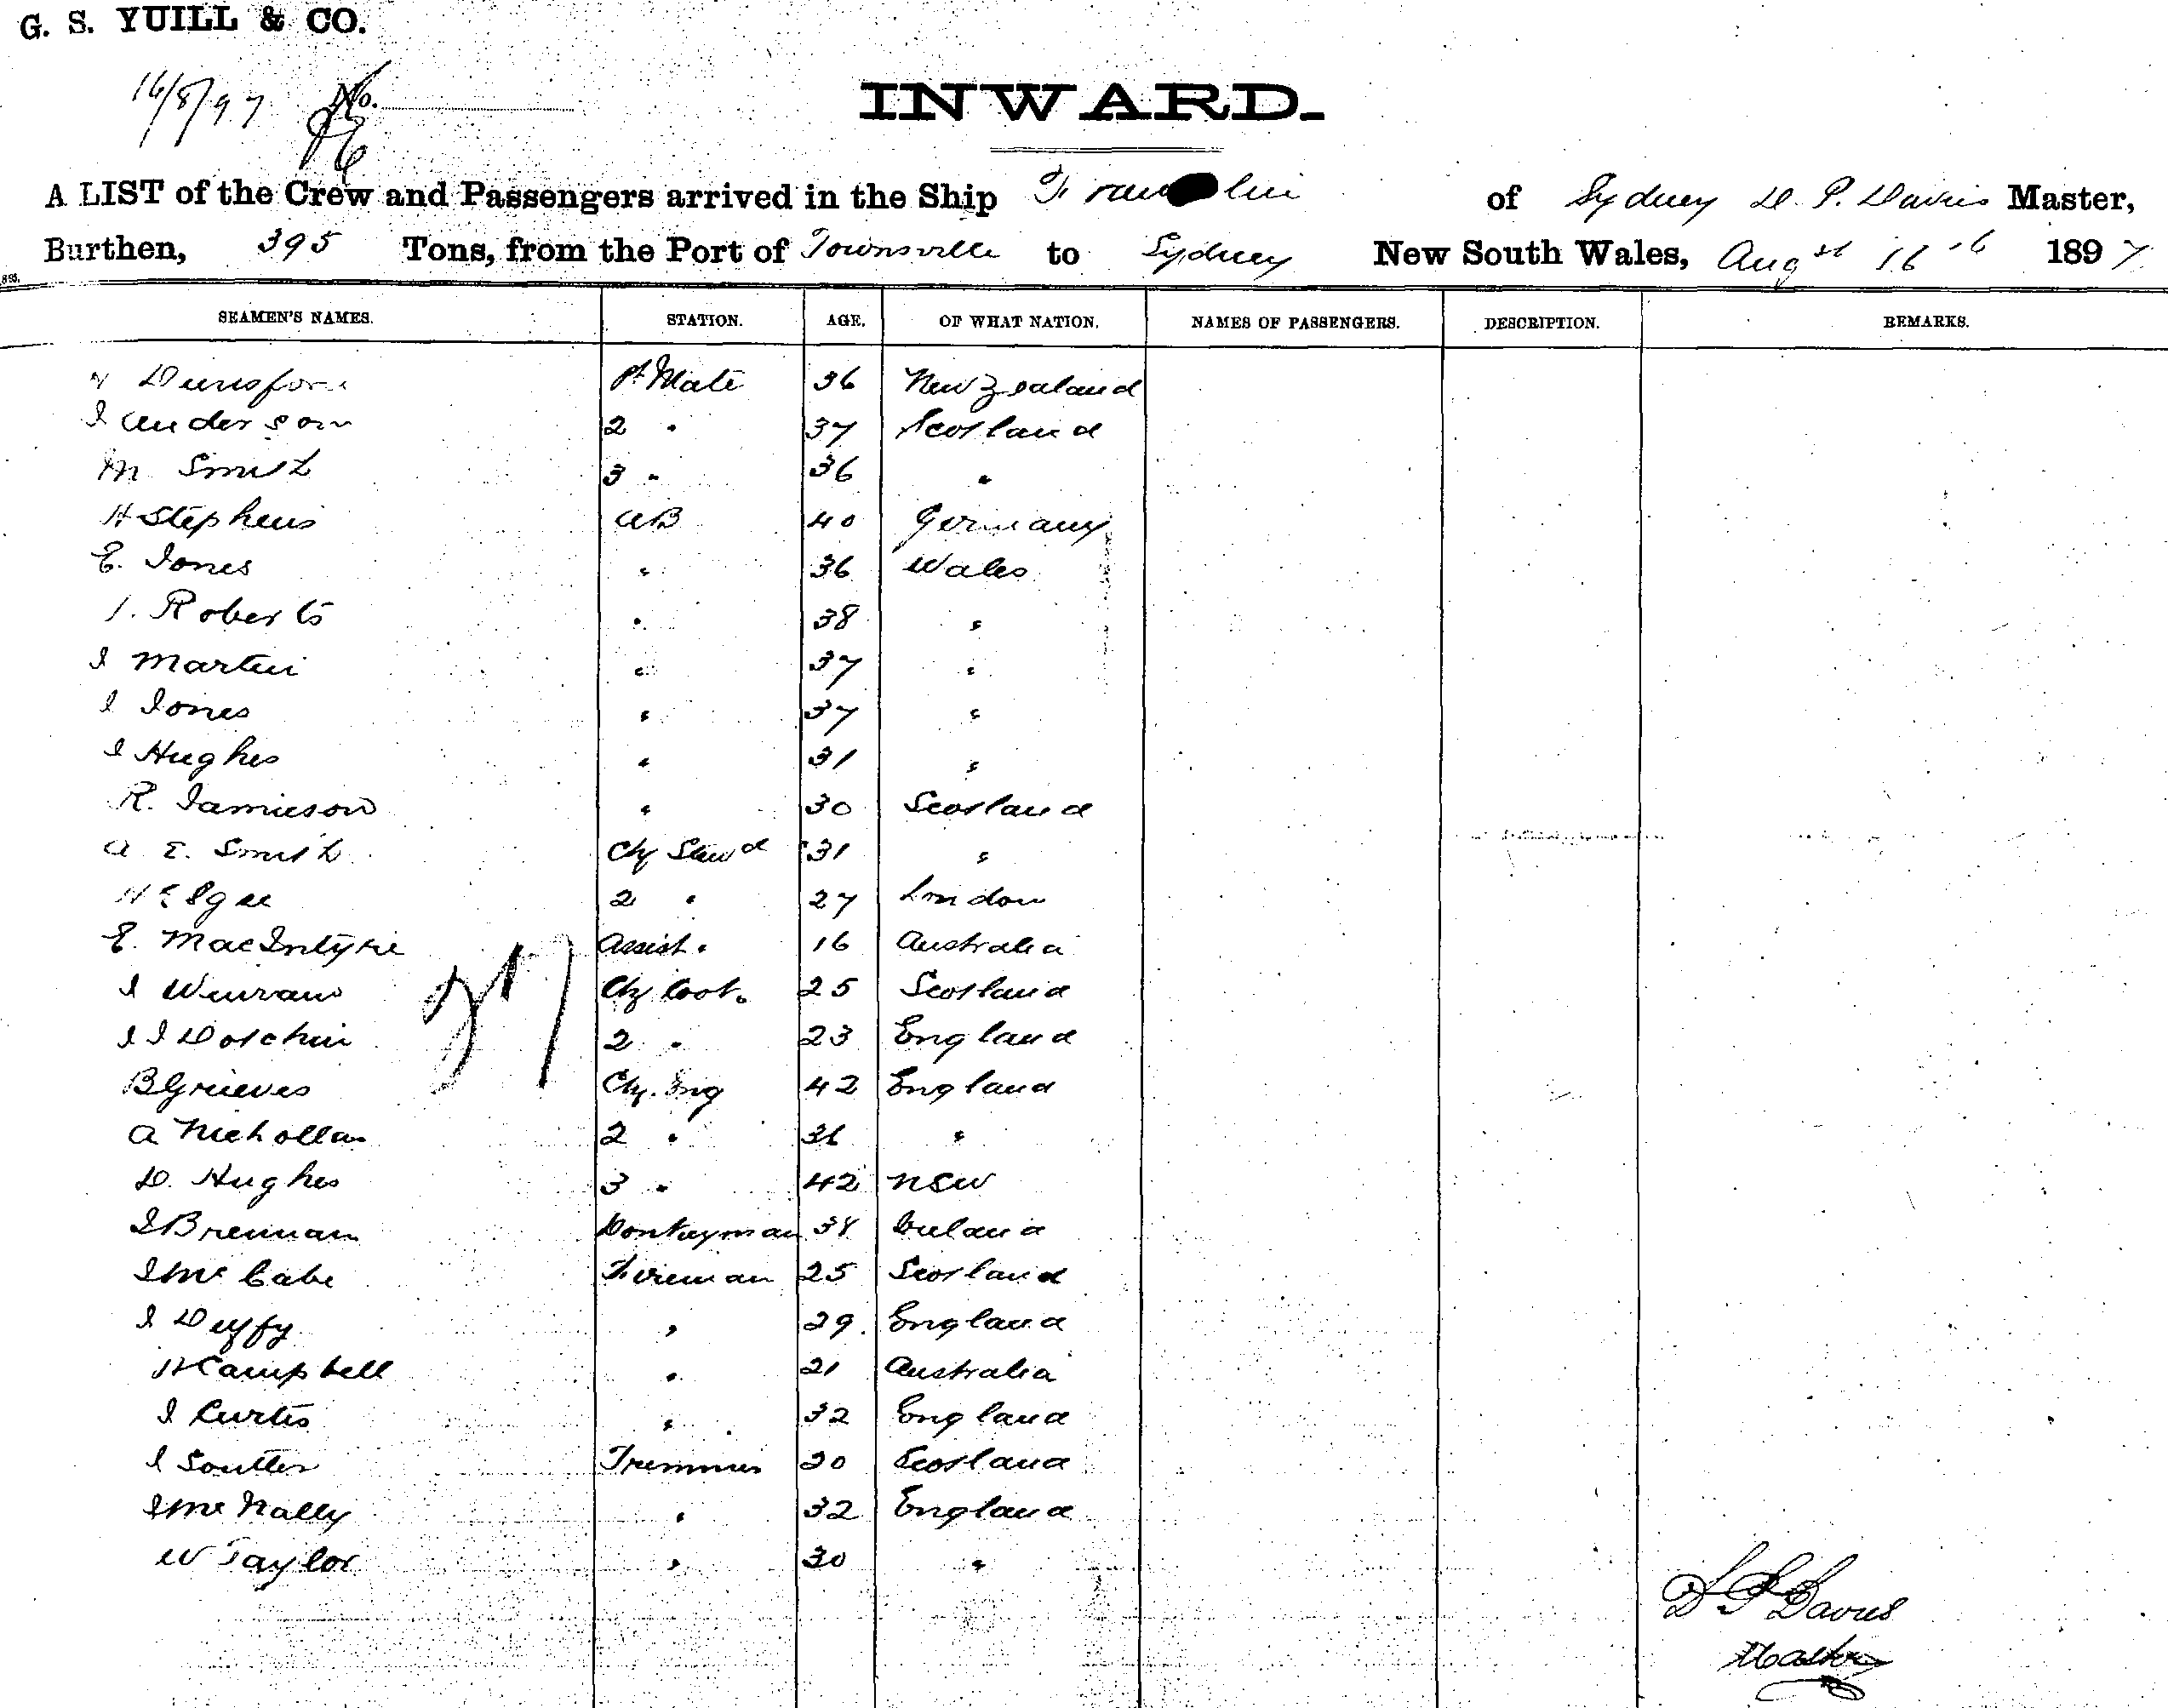 G. S. YUILL & CO.
16/8/97 No.
INWARD.
A LIST of the Crew and Passengers arrived in the Ship of Sydney D. P. Davies Master,
Burthen, 395 Tons, from the Port of Townsville to Sydney New South Wales, Augst 16th 1897
SEAMEN'S NAMES. STATION. AGE. OF WHAT NATION. NAMES OF PASSENGERS. DESCRIPTION. REMARKS.
Mate 36 New Zealand
J Anderson 2 " 37 Scotland
M Smith 3 " 36 "
H Stephens AB 40 Germany
E. Jones " 36 Wales
J. Roberts " 38 "
J Martin " 37 "
J Jones " 37 "
J Hughes " 31 "
R. Jamieson " 30 Scotland
A E. Smith Chf Stewd 31 "
2 " 27 London
E. MacIntyre Assist. 16 Australia
J Chf Cook 25 Scotland
J J Dotchin 2 " 23 England
B Grieves Chf. Eng 42 England
A Nicholls 2 " 36 "
D. Hughes 3 " 42 NSW
J Brennan Donkeyman Ireland
J Mc Cabe Fireman 25 Scotland
J Duffy " 29 England
H Campbell " 21 Australia
J Curtis " 32 England
J Soutter Trimmer 20 Scotland
J Mc Nally " 32 England
W Taylor " 30 "
D P Davies
Master